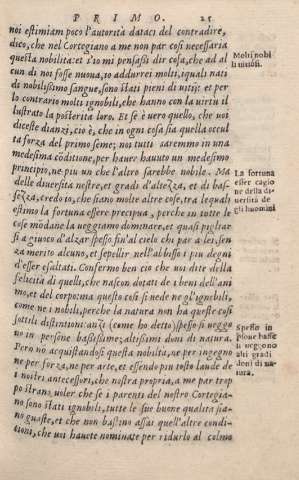 PRIMO. 25
noi estimiam poco l'autorità dataci del contradire,
dico, che nel Cortegiano a me non par così necessaria
questa nobilità: et s'io mi pensassi dir cosa, che ad al
cun di noi fosse nuoua, io addurrei molti, iquali nati
di nobilissimo sangue, sono stati pieni di uitij: et per
lo contrario molti ignobili, che hanno con la uirtu il
lustrato la posterità loro. Et se è uero quello, che uoi
diceste dianzi, ciò è, che in ogni cosa sia quella occul
ta forza del primo seme; noi tutti saremmo in una
medesima cõditione, per hauer hauuto un medesimo
principio, ne piu un che l'altro sarebbe nobile. Ma
delle diuersità nostre, et gradi d'altezza, et di baſ-
sezza, credo io, che siano molte altre cose, tra lequali
estimo la fortuna essere precipua, perche in tutte le
cose mõdane la ueggiamo dominare, et quasi pigliar
si a giuoco d'alzar spesso fin'al cielo chi par a lei, sen
za merito alcuno, et sepellir nell'abisso i piu degni
d'esser esaltati. Confermo ben ciò che uoi dite della
felicità di quelli, che nascon dotati de i beni dell'ani
mo, et del corpo: ma questo così si uede ne gl'ignobili,
come ne i nobili, perche la natura non ha queste così
sottili distintioni: anzi (come ho detto) spesso si ueggo
no in persone bassissime, altissimi doni di natura.
Però non acquistandosi questa nobilità, ne per ingegno
ne per forza, ne per arte, et essendo piu tosto laude de
i nostri antecessori, che nostra propria, a me par trop
po strano uoler che se i parenti del nostro Cortegia-
no sono stati ignobili, tutte le sue buone qualità sia-
no guaste, et che non bastino assai quell'altre condi-
tioni, che uoi hauete nominate per ridurlo al colmo
Molti nobi
li uitiosi.
La fortuna
esser cagio
ne della di-
uersità de
gli huomini
Spesso in
psone basse
si ueggono
alti gradi
doni di na-
tura.